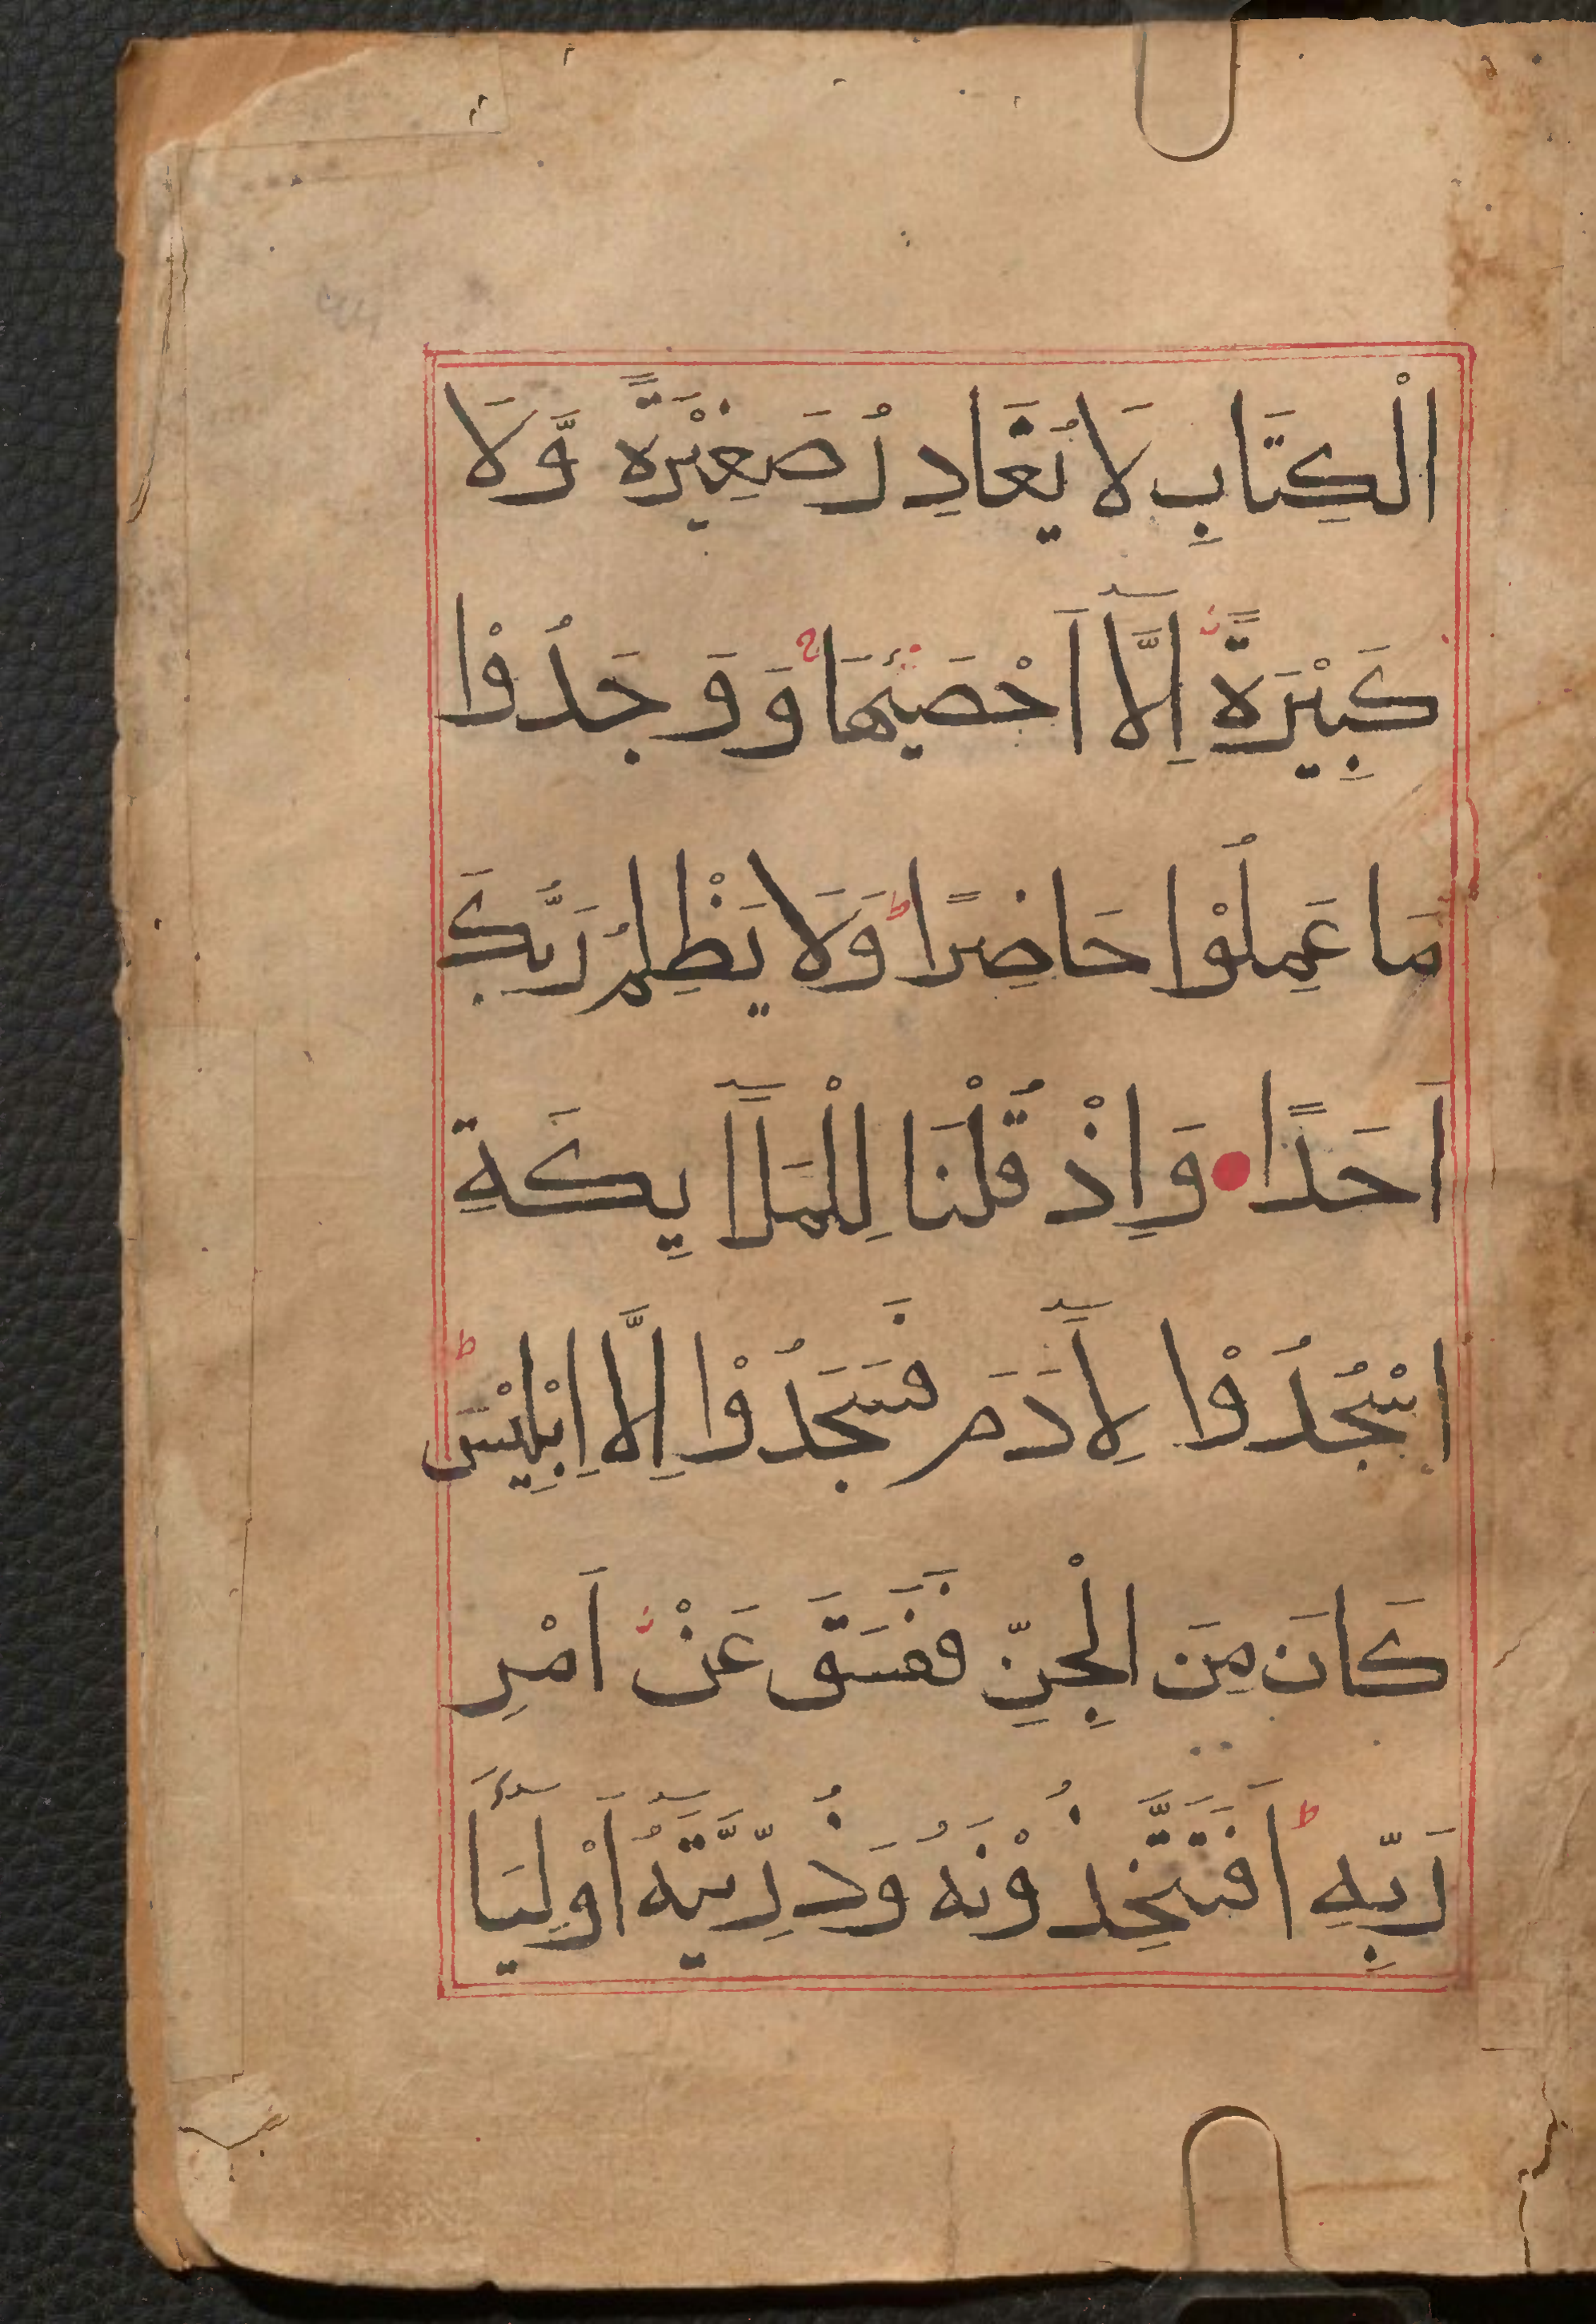 الْكِتَابِ لَا يُغَادِرُ صَغِيْرَةً وَّلَا
كَبِيْرَةً اِلَّآ اَحْصٰىهَا ۚ وَوَجَدُوْا
مَا عَمِلُوْا حَاضِرًا ؕ وَلَا يَظْلِمُ رَبُّكَ
اَحَدًا وَاِذْ قُلْنَا لِلْمَلَآيِكَةِ
اسْجُدُوْا لِاٰدَمَ فَسَجَدُوْا اِلَّا اِبْلِيْسَ ؕ
كَانَ مِنَ الْجِنِّ فَفَسَقَ عَنْ اَمْرِ
رَبِّهِ ؕ اَفَتَتَّخِذُوْنَهُ وَذُرِّيَّتَهُٓ اَوْلِيَآءَ